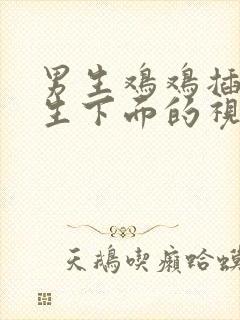 男生鸡鸡插
生下面的視
天鵝喫癩蛤蟆